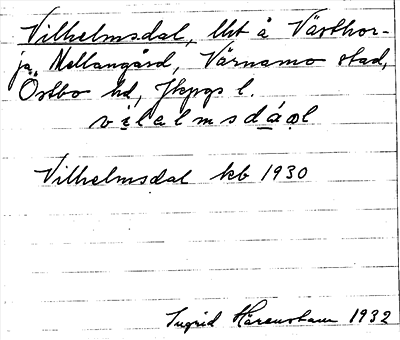 Vilhelmsdal, lht å Västhor-
ja Mellangård, Värnamo stad,
Östbo hd, Jkpgs l.
vilelmsdáal
Vilhelmsdal kb 1930
Ingrid Härenstam 1932